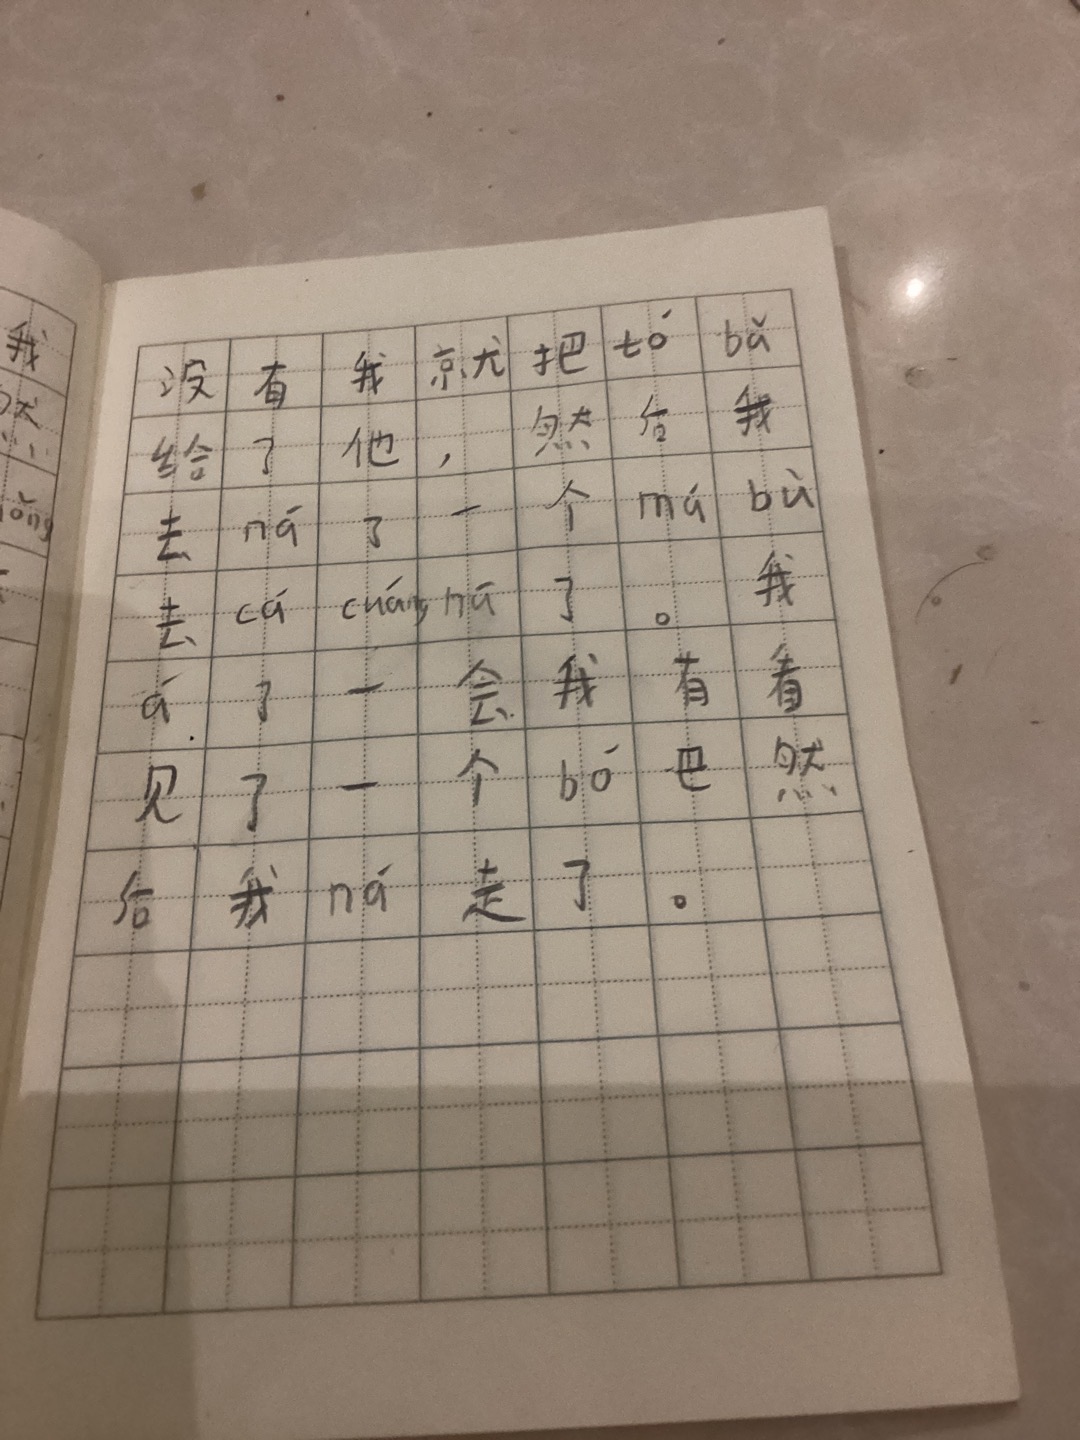 没有我就把tóbǎ
给了他，然后我
去ná了一个mábù
去cáchuángná了。我
á了一会我有看
见了一个bó巴然
后我ná走了。
我
然